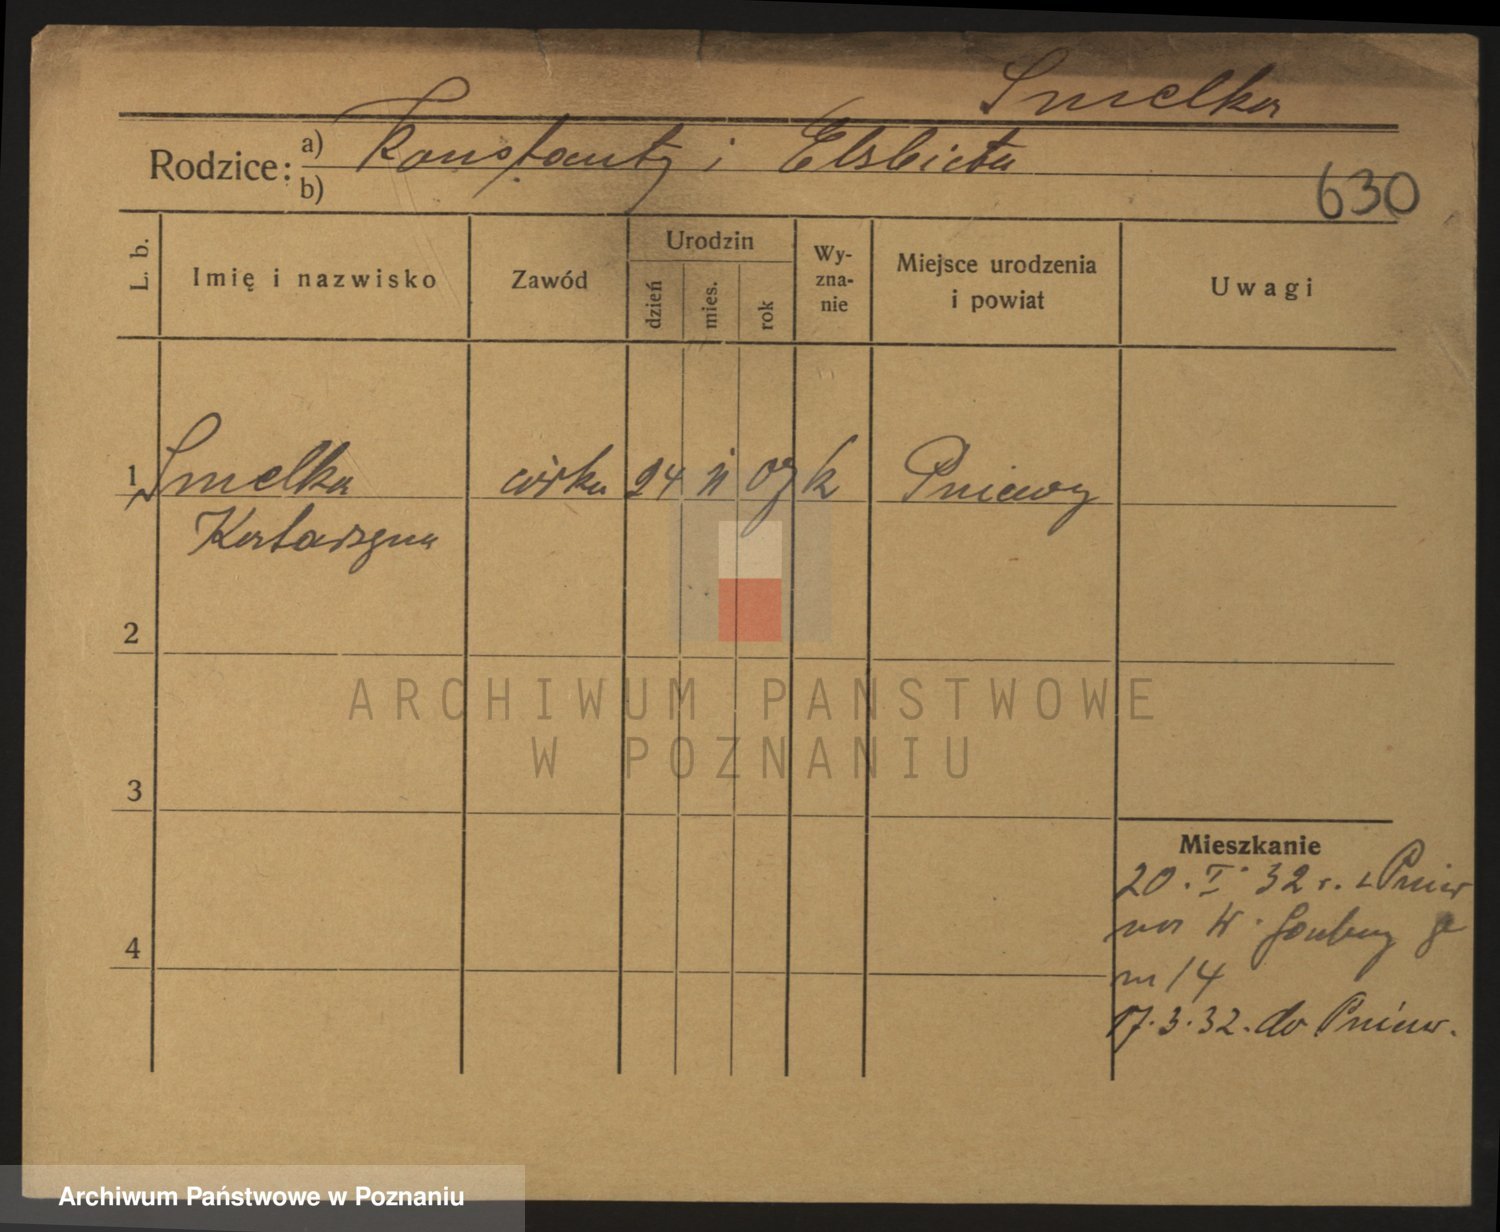 Smelka
Rodzice: a) Konstanty i Elsbieta
b)
630
L. b.
Imię i nazwisko
Zawód
Urodzin
dzień
mies.
rok
Wy-
zna-
nie
Miejsce urodzenia
i powiat
Uwagi
1 Smelka córka 24 11 09 k Pniewy
Katarzyna
2
3
4
Mieszkanie
20. I. 32 r. z Pniew
na W.
m 14
17.3.32. do Pniew.
ARCHIWUM PAŃSTWOWE
W POZNANIU
Archiwum Państwowe w Poznaniu